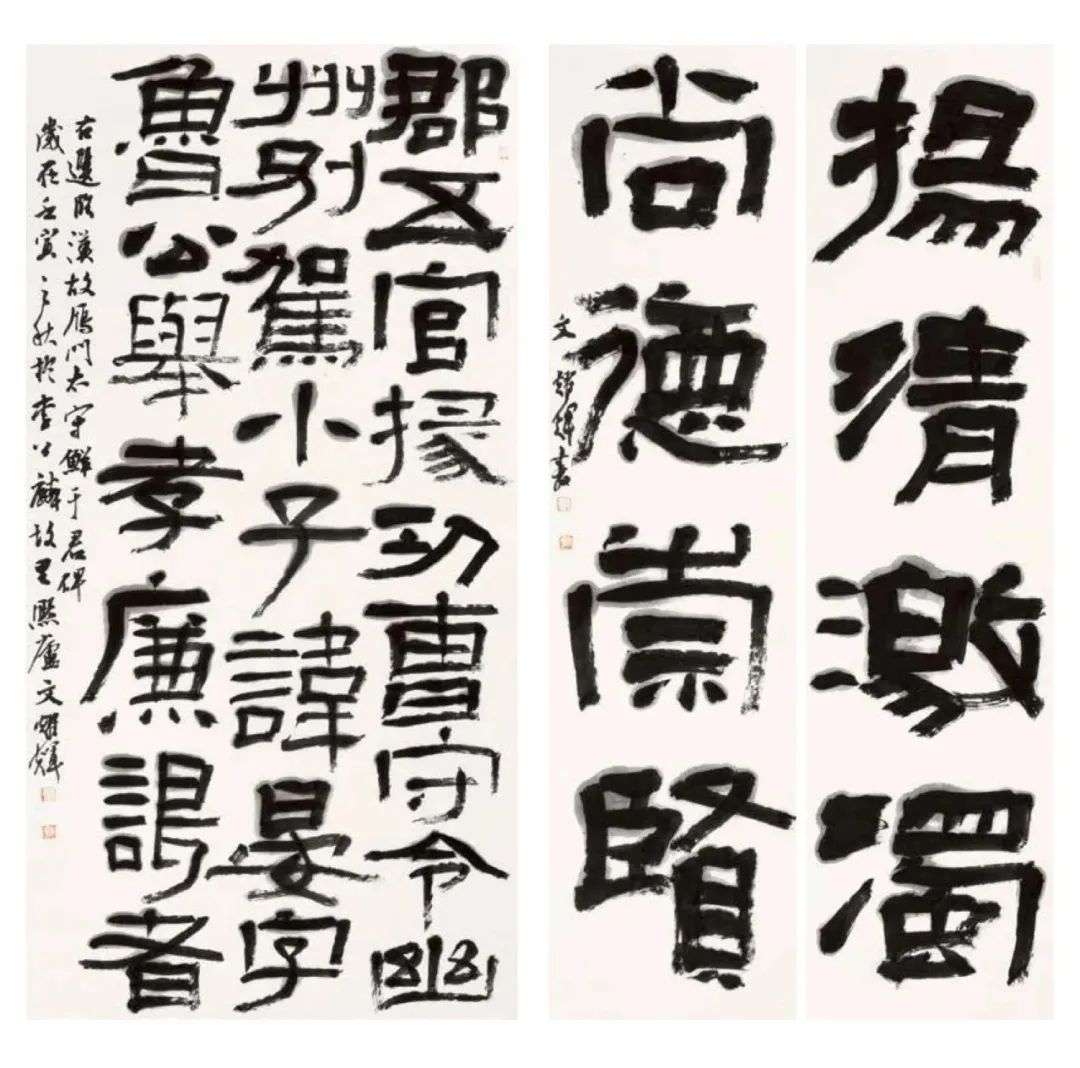 揚清激濁
尚德崇賢
文燿煇書
郡五官掾功曹守令幽
州別駕小子諱晏字
魯公舉孝廉謁者
右選臨漢故鴈門太守鮮于君碑
歲在壬寅之秋於李公麟故里熙廬文燿煇